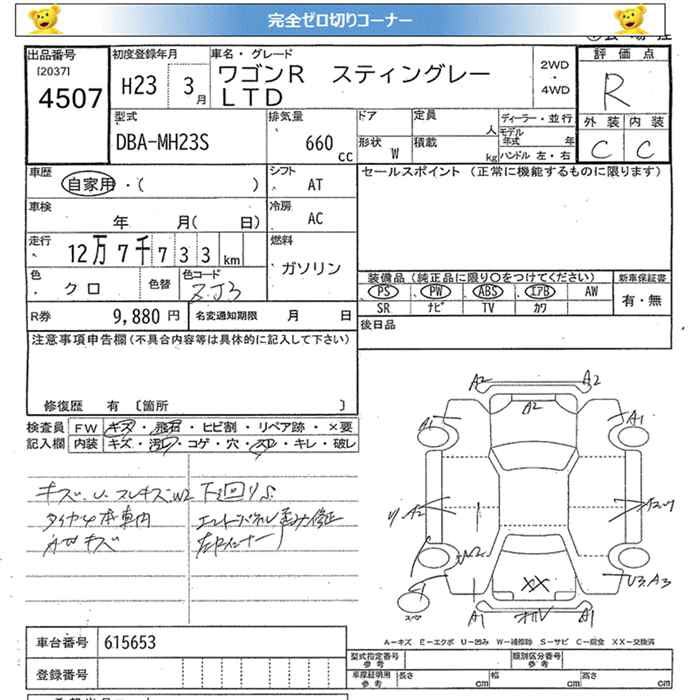 完全ゼロ切りコーナー
出品番号
[2037]
4507
初度登録年月
H23 3月
車名・グレード
ワゴンR スティングレー
LTD
2WD
・
4WD
評価点
R
外装 内装
C C
型式
DBA-MH23S
排気量
660
cc
ドア
定員
人
形状
W
積載
kg
ディーラー・並行
モデル
年式 年
ハンドル 左・右
車歴
自家用・( )
シフト
AT
セールスポイント (正常に機能するものに限ります)
車検
年 月( 日)
冷房
AC
走行
12万7千733 km
燃料
ガソリン
色
クロ
色替
色コード
ZJ3
装備品 (純正品に限り〇をつけてください)
新車保証書
PS PW ABS エアB AW
有・無
SR ナビ TV カワ
R券 9,880 円
名変通知期限 月 日
後日品
注意事項申告欄(不具合内容等は具体的に記入して下さい)
修復歴 有 〔箇所 〕
検査員
記入欄
FW キズ・飛石・ヒビ割・リペア跡・×要
内装 キズ・汚レ・コゲ・穴・スレ・キレ・破レ
A2 A2
A2
A1 A1
XX
A1 A1
U3.A3
車台番号 615653
登録番号
A-キズ E-エクボ U-凹み W-補修跡 S-サビ C-腐食 XX-交換済
型式指定番号
参考
類別区分番号
参考
車庫証明用
参考
長さ cm 幅 cm 高さ cm